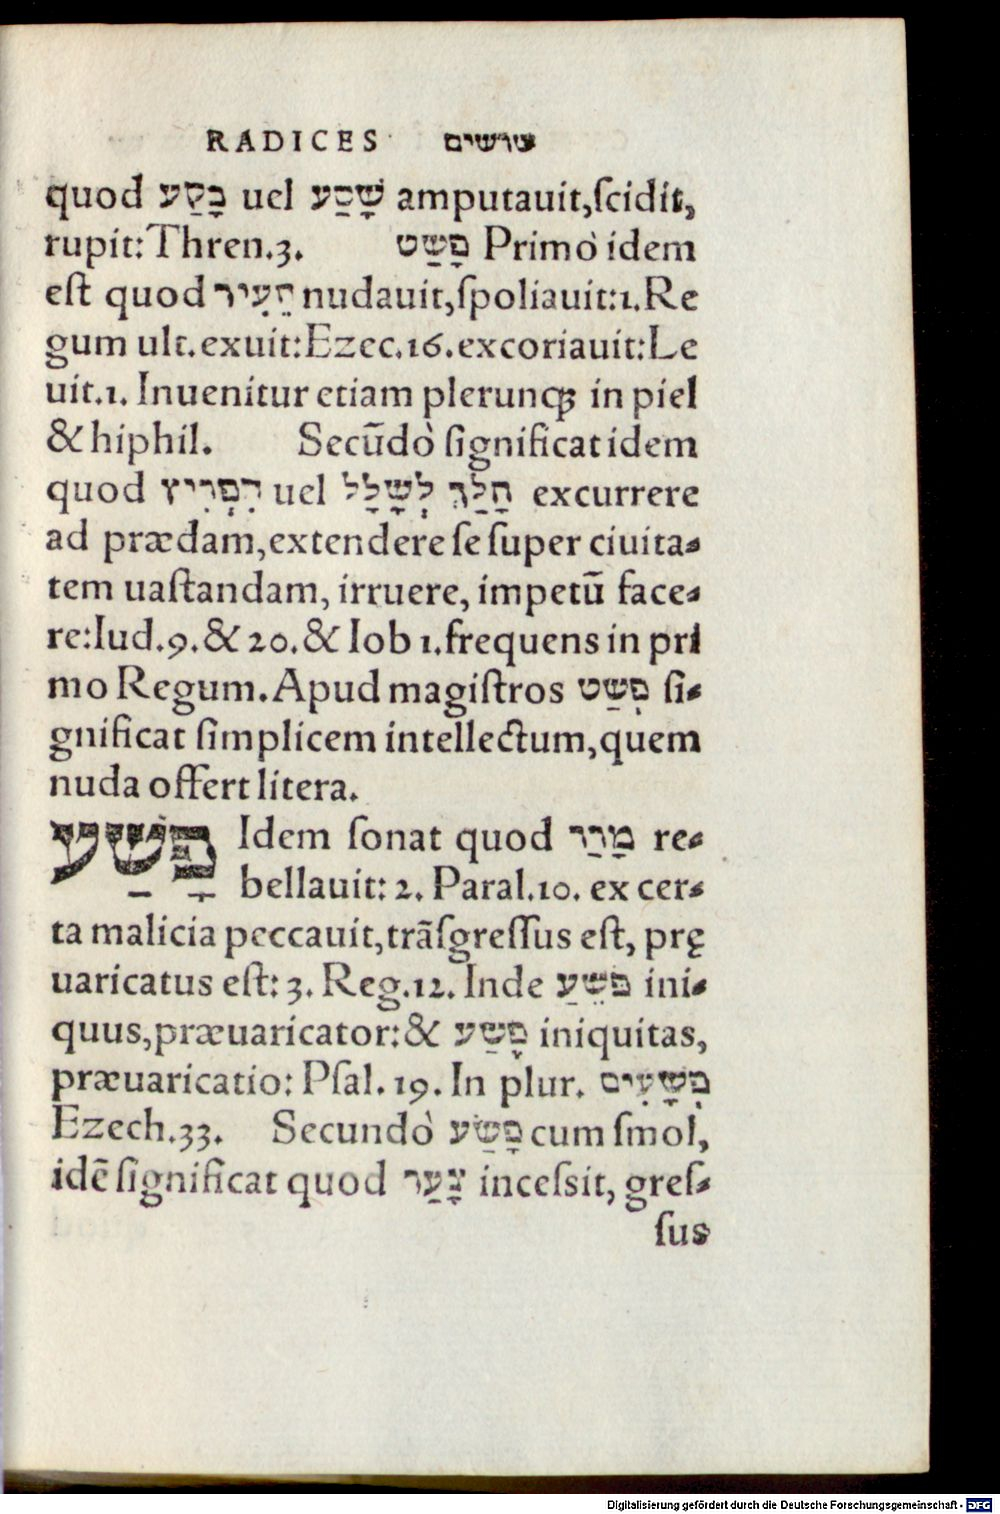 RADICES שורשים
quod בָּקַע uel שָׁסַע amputauit,scidit,
rupit:Thren.3. פָּשַׁט Primò idem
est quod הֵעָיר nudauit,spoliauit:1.Re
gum ult.exuit:Ezec.16.excoriauit:Le
uit.1. Inuenitur etiam plerunq́; in piel
& hiphil. Secũdò significat idem
quod הִפְרִיץ uel הָלַךְ לְשָׁלָל excurrere
ad prædam,extendere se super ciuita-
tem uastandam, irruere, impetũ face-
re:Iud.9.& 20.& Iob 1.frequens in pri
mo Regum.Apud magistros פְּשַׁט si-
gnificat simplicem intellectum,quem
nuda offert litera.
פָּשַׁע Idem sonat quod מָרַד re-
bellauit: 2. Paral.10. ex cer-
ta malicia peccauit,trãsgressus est, prę
uaricatus est: 3. Reg.12. Inde פֹּשֵׁעַ ini-
quus,præuaricator:& פֶּשַׁע iniquitas,
præuaricatio: Psal. 19. In plur. פְּשָׁעִים
Ezech.33. Secundò פָּשַׂע cum smol,
idẽ significat quod צָעַד incessit, gres-
sus
Digitalisierung gefördert durch die Deutsche Forschungsgemeinschaft - DFG